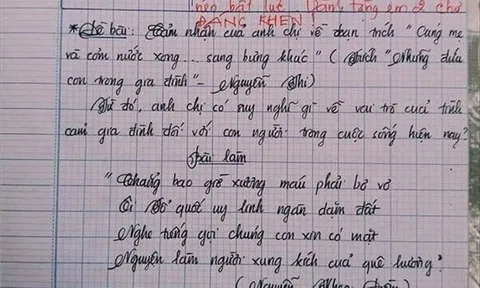 nên bất lực. Dành tặng em 2 chữ
ĐÁNG KHEN!
* Đề bài: Cảm nhận của anh chị về đoạn trích "Cúng mẹ
và cơm nước xong... sang bưng khác" (Trích "Những đứa
con trong gia đình" - Nguyễn Thi)
Từ đó, anh chị có suy nghĩ gì về vai trò của tình
cảm gia đình đối với con người trong cuộc sống hiện nay?
Bài làm
"Chẳng bao giờ xương máu phải bơ vơ
Ôi Tổ quốc uy linh ngàn dặm đất
Nghe tiếng gọi chúng con xin có mặt
Nguyện làm người xung kích của quê hương"
(Nguyễn Khoa